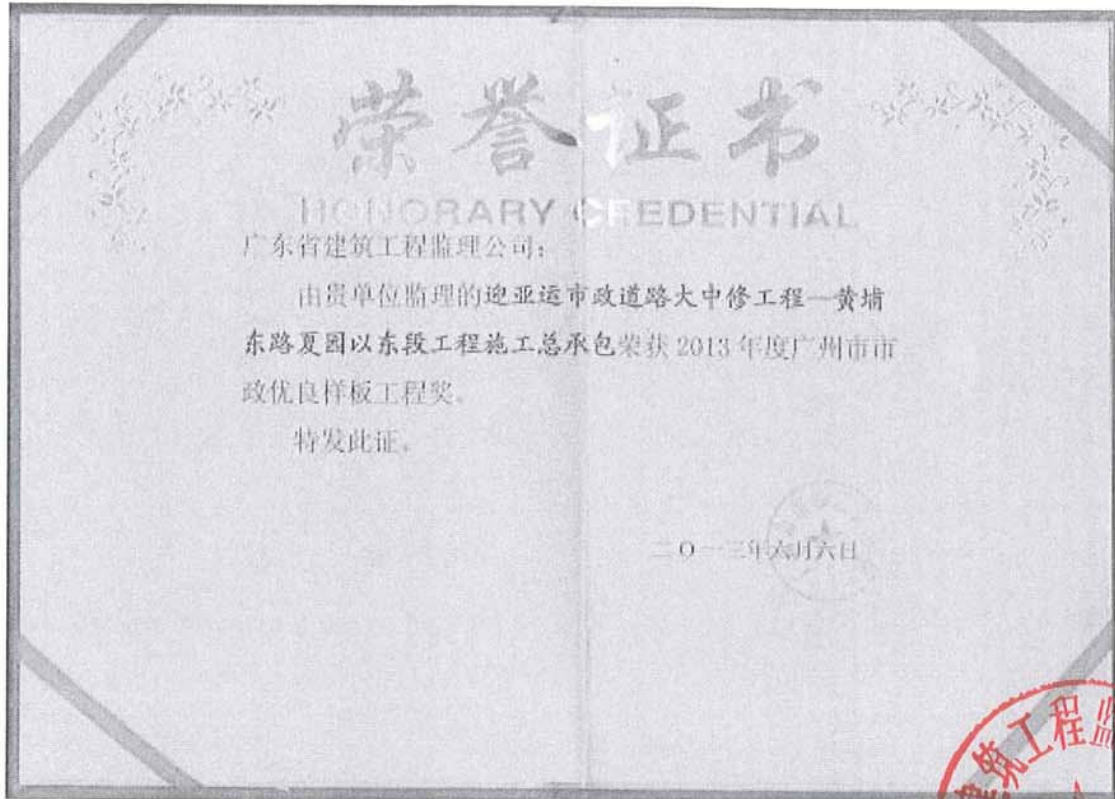 荣誉证书
HONORARY CREDENTIAL
广东省建筑工程监理公司：
由贵单位监理的迎亚运市政道路大中修工程—黄埔
东路夏园以东段工程施工总承包荣获 2013 年度广州市市
政优良样板工程奖。
特发此证。
二０一三年六月六日
建筑工程监